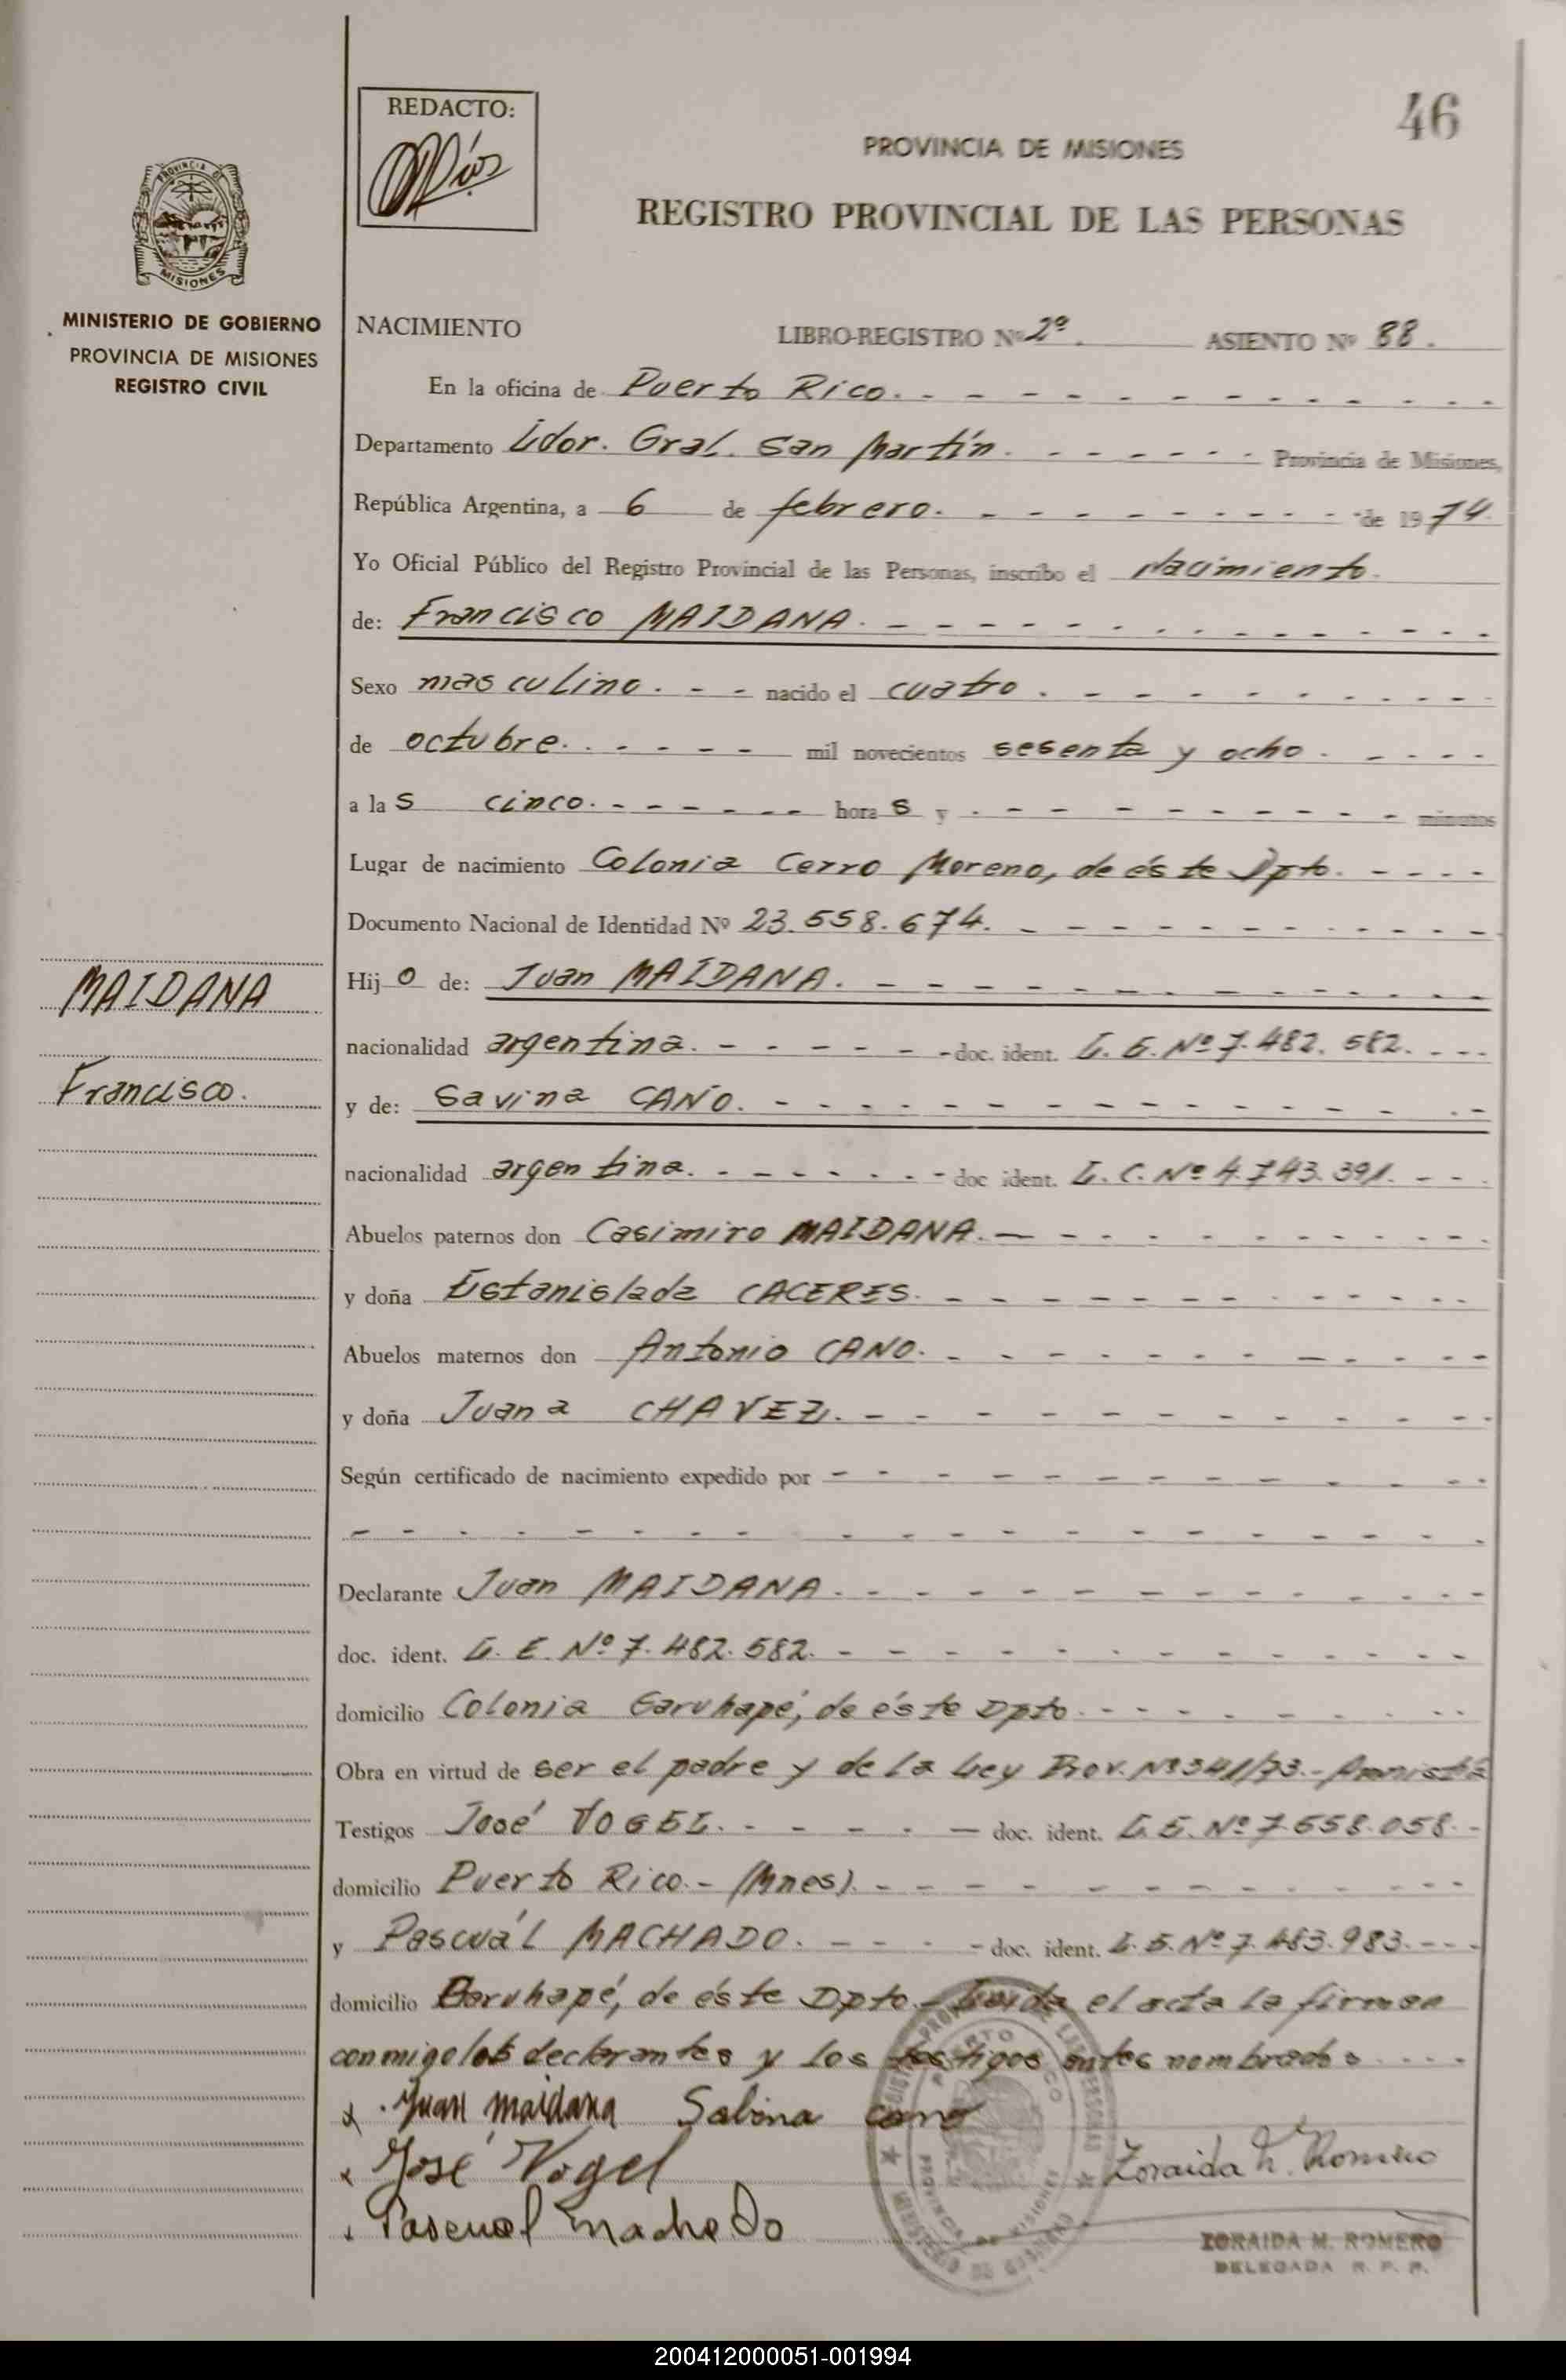 46
REDACTO:
PROVINCIA DE MISIONES
REGISTRO PROVINCIAL DE LAS PERSONAS
PROVINCIA DE
MISIONES
MINISTERIO DE GOBIERNO
PROVINCIA DE MISIONES
REGISTRO CIVIL
NACIMIENTO LIBRO-REGISTRO Nº 2º. ASIENTO Nº 88.
En la oficina de Puerto Rico.
Departamento Ldor. Gral. San Martín. Provincia de Misiones,
República Argentina, a 6 de febrero. de 1974.
Yo Oficial Público del Registro Provincial de las Personas, inscribo el Nacimiento.
de: Francisco MAIDANA.
Sexo masculino. nacido el cuatro.
de octubre. mil novecientos sesenta y ocho.
a las cinco. horas y minutos
Lugar de nacimiento Colonia Cerro Moreno, de éste Dpto.
Documento Nacional de Identidad Nº 23.558.674.
MAIDANA
Francisco.
Hijo de: Juan MAIDANA.
nacionalidad argentina. doc. ident. L.E. Nº 7.482.582.
y de: Savina CANO.
nacionalidad argentina. doc ident. L.C. Nº 4.743.391.
Abuelos paternos don Casimiro MAIDANA.
y doña Estanislada CACERES.
Abuelos maternos don Antonio CANO.
y doña Juana CHAVEZ.
Según certificado de nacimiento expedido por
Declarante Juan MAIDANA.
doc. ident. L.E. Nº 7.482.582.
domicilio Colonia Garuhapé, de éste Dpto.
Obra en virtud de ser el padre y de la Ley Prov. Nº 341/73.- Amnistía
Testigos José VOGEL. doc. ident. L.E. Nº 7.558.058.
domicilio Puerto Rico.- (Mnes).
y Pascuál MACHADO. doc. ident. L.E. Nº 7.483.983.
domicilio Garuhapé, de éste Dpto.- Leída el acta la firman
conmigo los declarantes y los testigos antes nombrados
Juan Maidana Sabina Cano
José Vogel Zoraida M. Romero
Pascual Machado
ZORAIDA M. ROMERO
DELEGADA R. P. P.
200412000051-001994